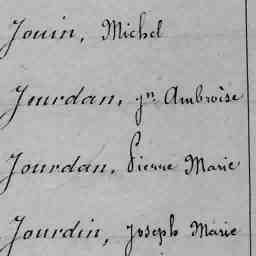 Jouin, Michel
Jourdan, jn Ambroise
Jourdan, Pierre Marie
Jourdin, Joseph Marie